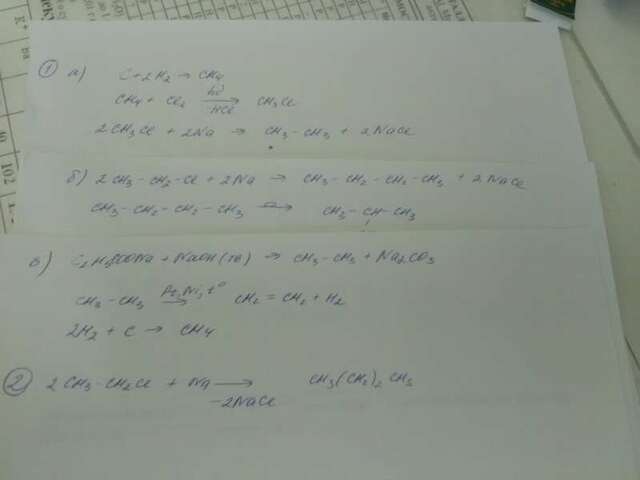 ① а) C + 2H₂ → CH₄
CH₄ + Cl₂ hν→ HCl CH₃Cl
2CH₃Cl + 2Na → CH₃-CH₃ + 2NaCl
б) 2CH₃-CH₂-Cl + 2Na → CH₃-CH₂-CH₂-CH₃ + 2NaCl
CH₃-CH₂-CH₂-CH₃ → CH₃-CH-CH₃
в) C₂H₅COONa + NaOH(тв) → CH₃-CH₃ + Na₂CO₃
CH₃-CH₃ Pt, Ni, t° → CH₂=CH₂ + H₂
2H₂ + C → CH₄
② 2CH₃-CH₂Cl + Na → -2NaCl CH₃(CH₂)₂CH₃
102